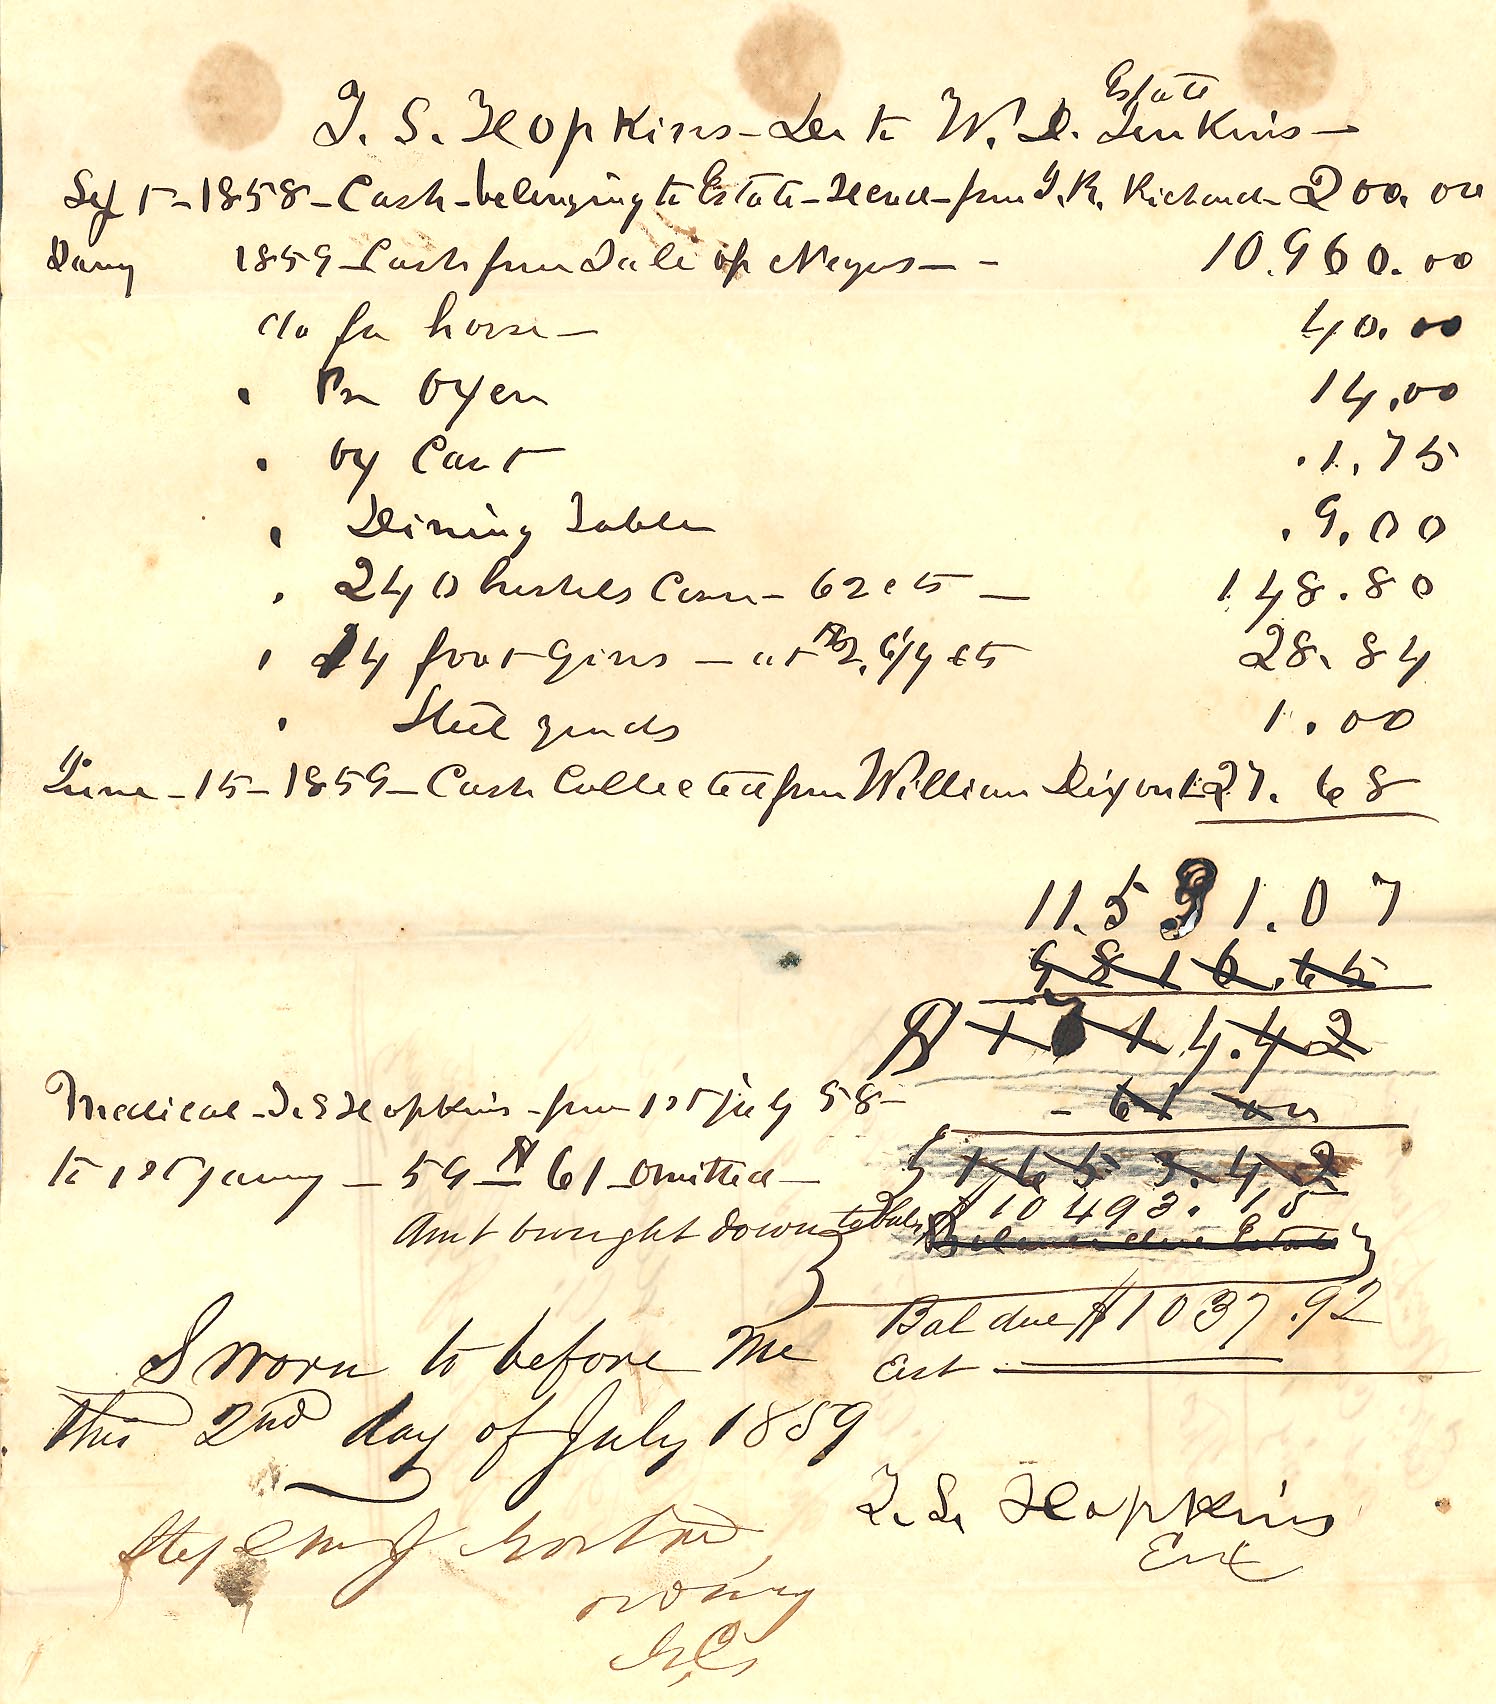 Estate
T. S. Hopkins - Dr to W. D. Jenkins -
Sep 1 - 1858 - Cash - belonging to Estate - Recd - from J. R. Richard - 200.00
Jany 1859 - Cash from Sale of Negros - - 10.960.00
do for horse - 40.00
" Pr Oxen 14.00
" Ox Cart .1.75
" Dining Table .9.00
" 240 bushels Corn - 62 cts - 148.80
" 14 foot Gins - at $2.6/ cts 28.84
" Steel 1.00
June - 15 - 1859 - Cash Collected from William Dixon 127.68
11.531.07
9816.65
$ 1 14.42
Medical - T. S Hopkins - from 1st July 58 - - 61 00
to 1st Jany - 59 $ 61 - Omitted - $ 1653.42
Amt brought down $ 10493.15
Balance due Estate
Bal due $1037.92
Est
Sworn to before me
this 2nd day of July 1859
T. S. Hopkins
Exr